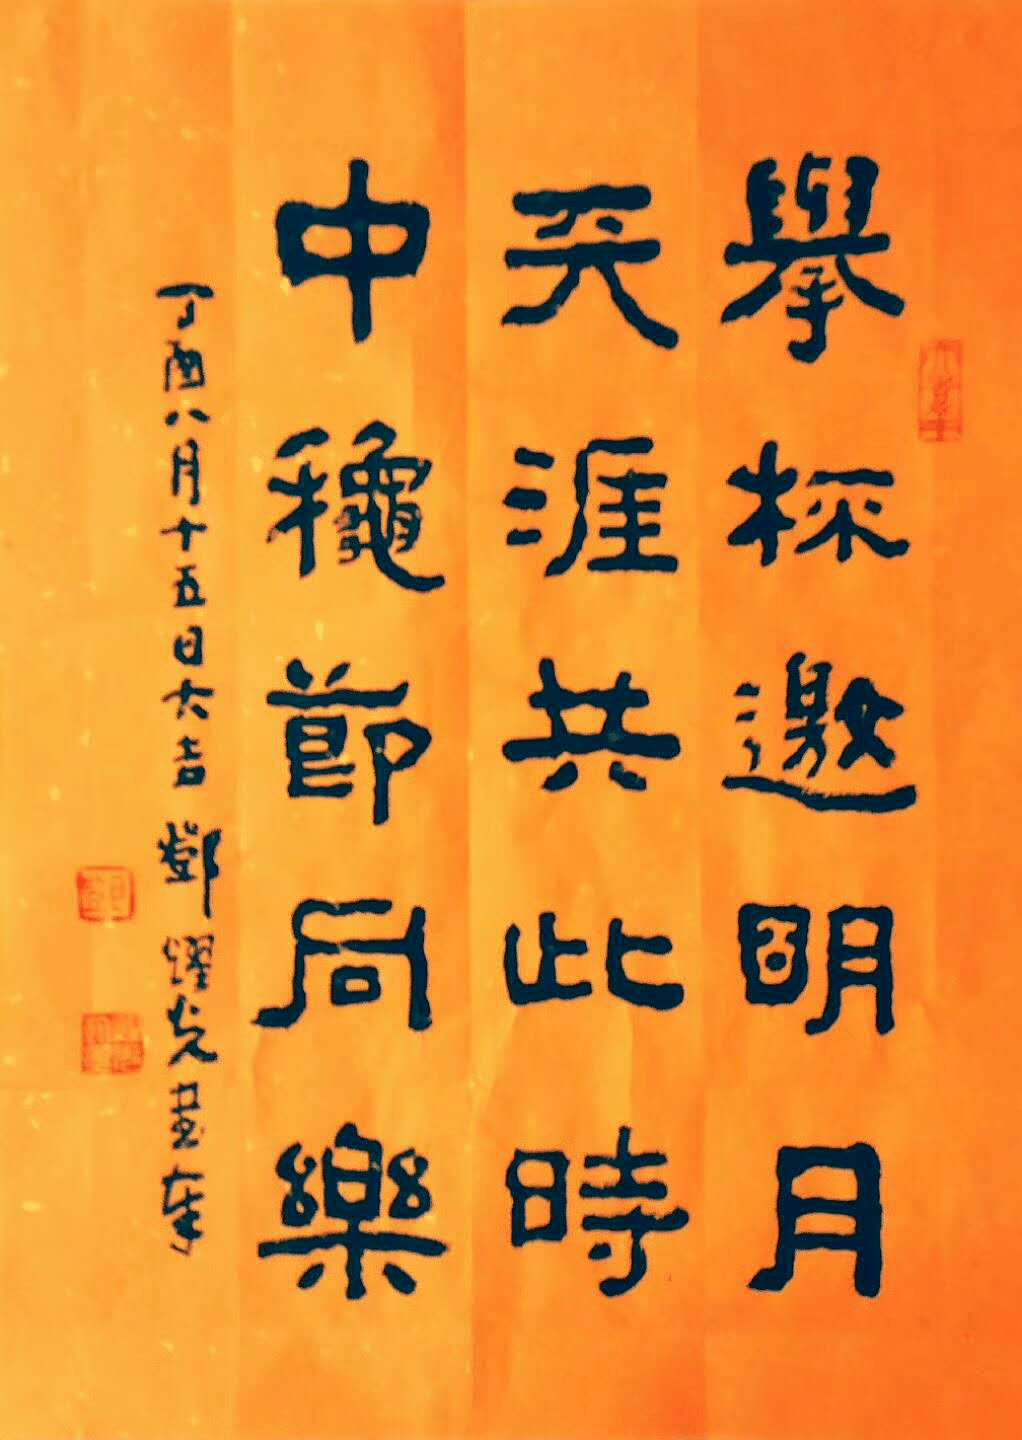 舉杯邀明月
天涯共此時
中龝節同樂
丁酉八月十五日大吉 鄧燿堯書奉